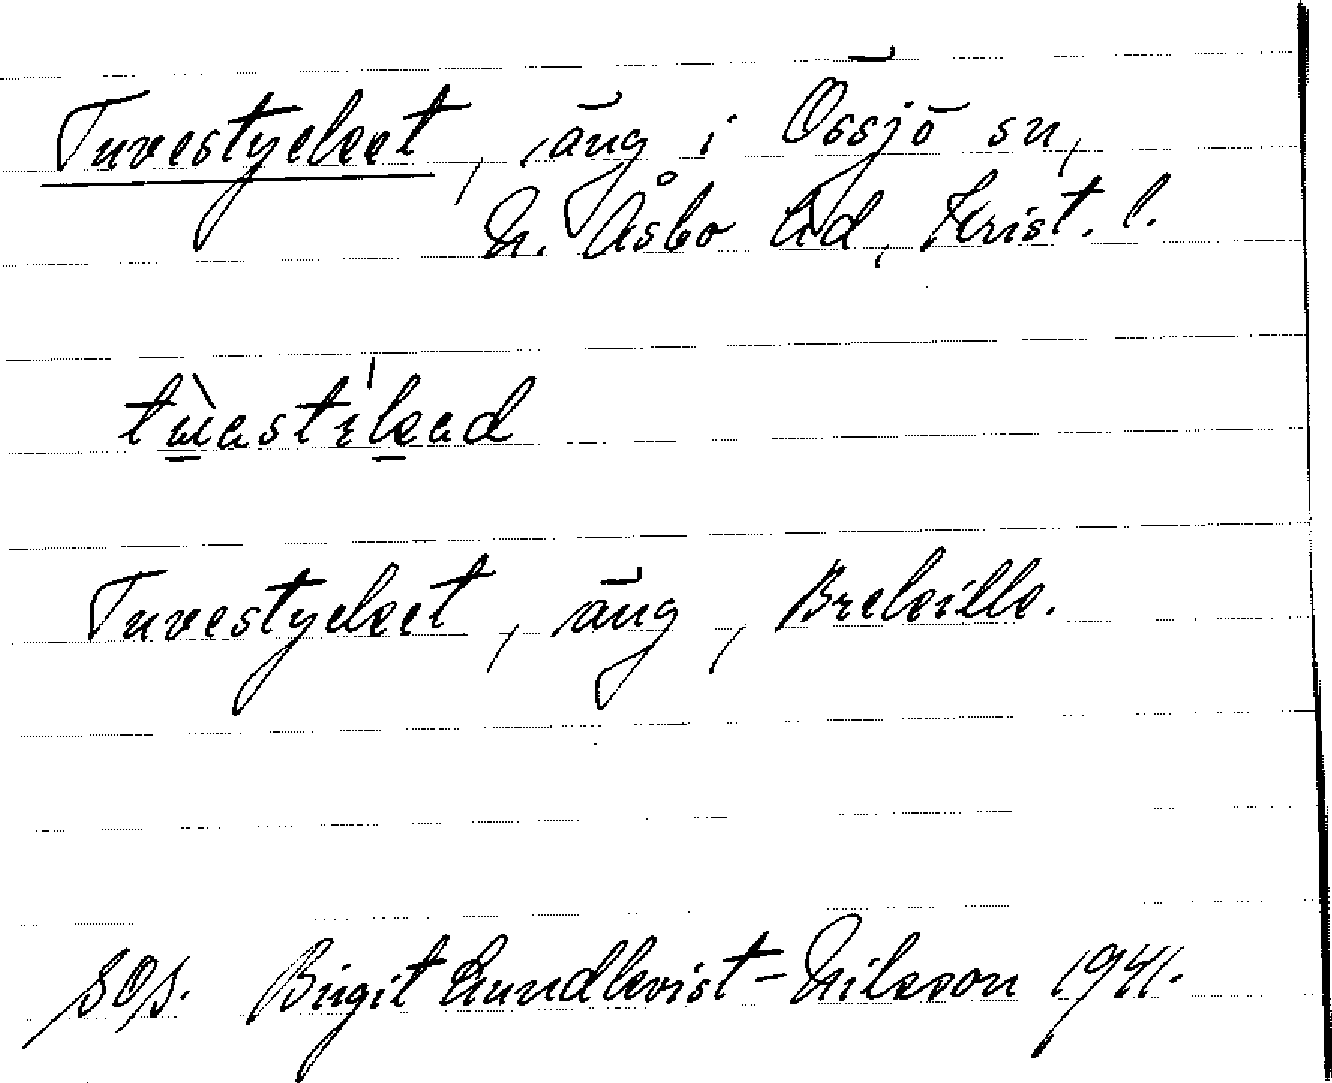 Tuvestycket, äng i Össjö sn,
N. Åsbo hd, Krist. l.
Tuvestycket, äng, Breksille.
sos. Birgit Lundkvist-Nilsson 1941.